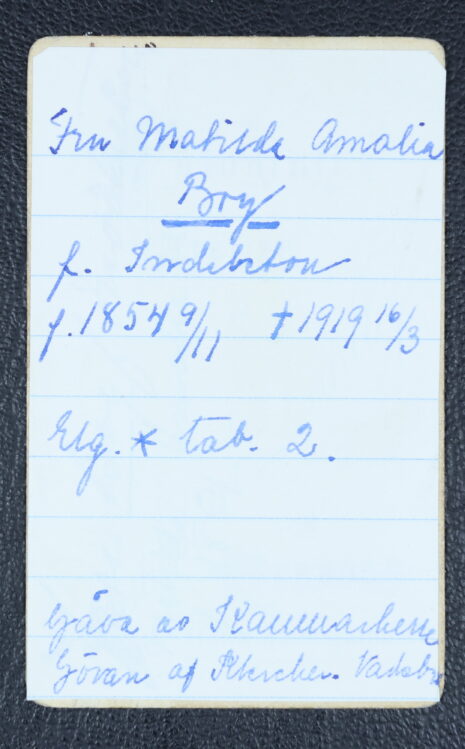 Fru Matilda Amalia
Bry
f. Indebetou
f. 1854 9/11 † 1919 16/3
Elg. * tab. 2.
Gåva av Kammarherre
Göran af Klercker. Vadsbro